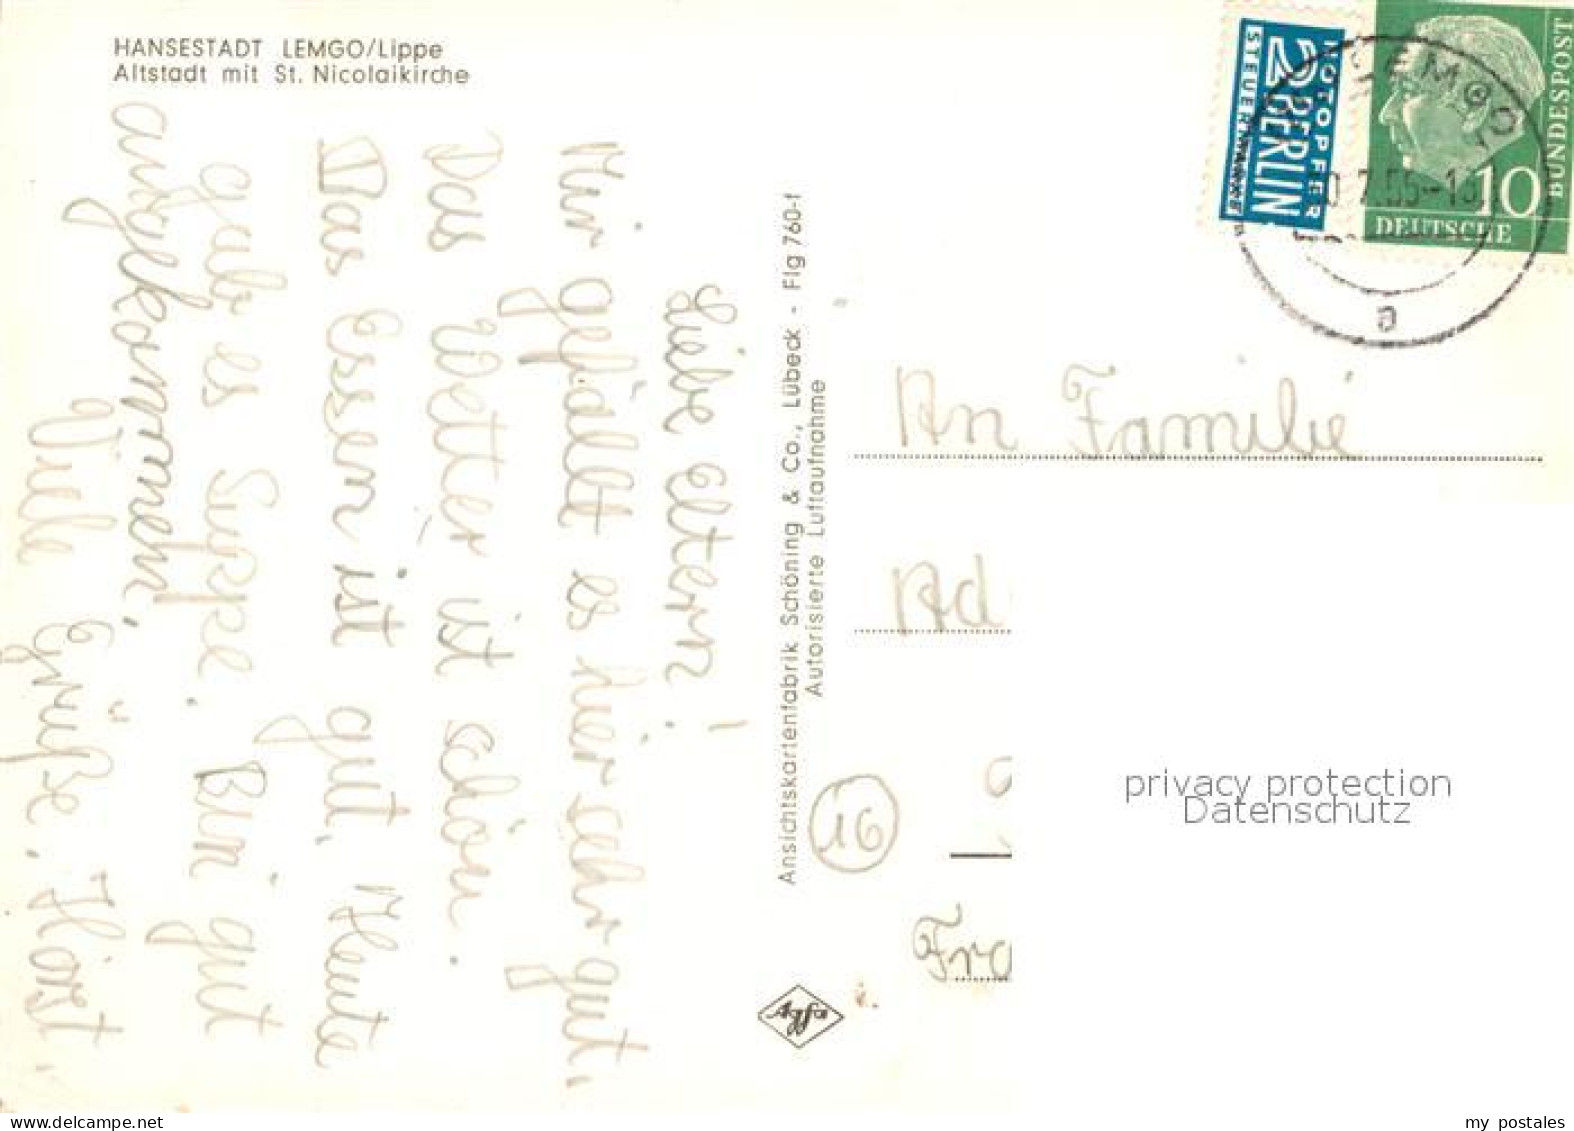 HANSESTADT LEMGO/Lippe
Altstadt mit St. Nicolaikirche
Liebe eltern!
Mir gefällt es hier sehr gut,
Das Wetter ist schön.
Das Essen ist gut, Heute
gab es Suppe. Bin gut
angekommen,
Viele Grüße. Horst.
Ansichtskartenfabrik Schöning & Co., Lübeck - Flg 760-1
Autorisierte Luftaufnahme
16
NOTOPFER
2 BERLIN
STEUERMARKE
10
DEUTSCHE
BUNDESPOST
LEMGO
a
An Familie
privacy protection
Datenschutz
www.ansichtskarten-center.de
my postales